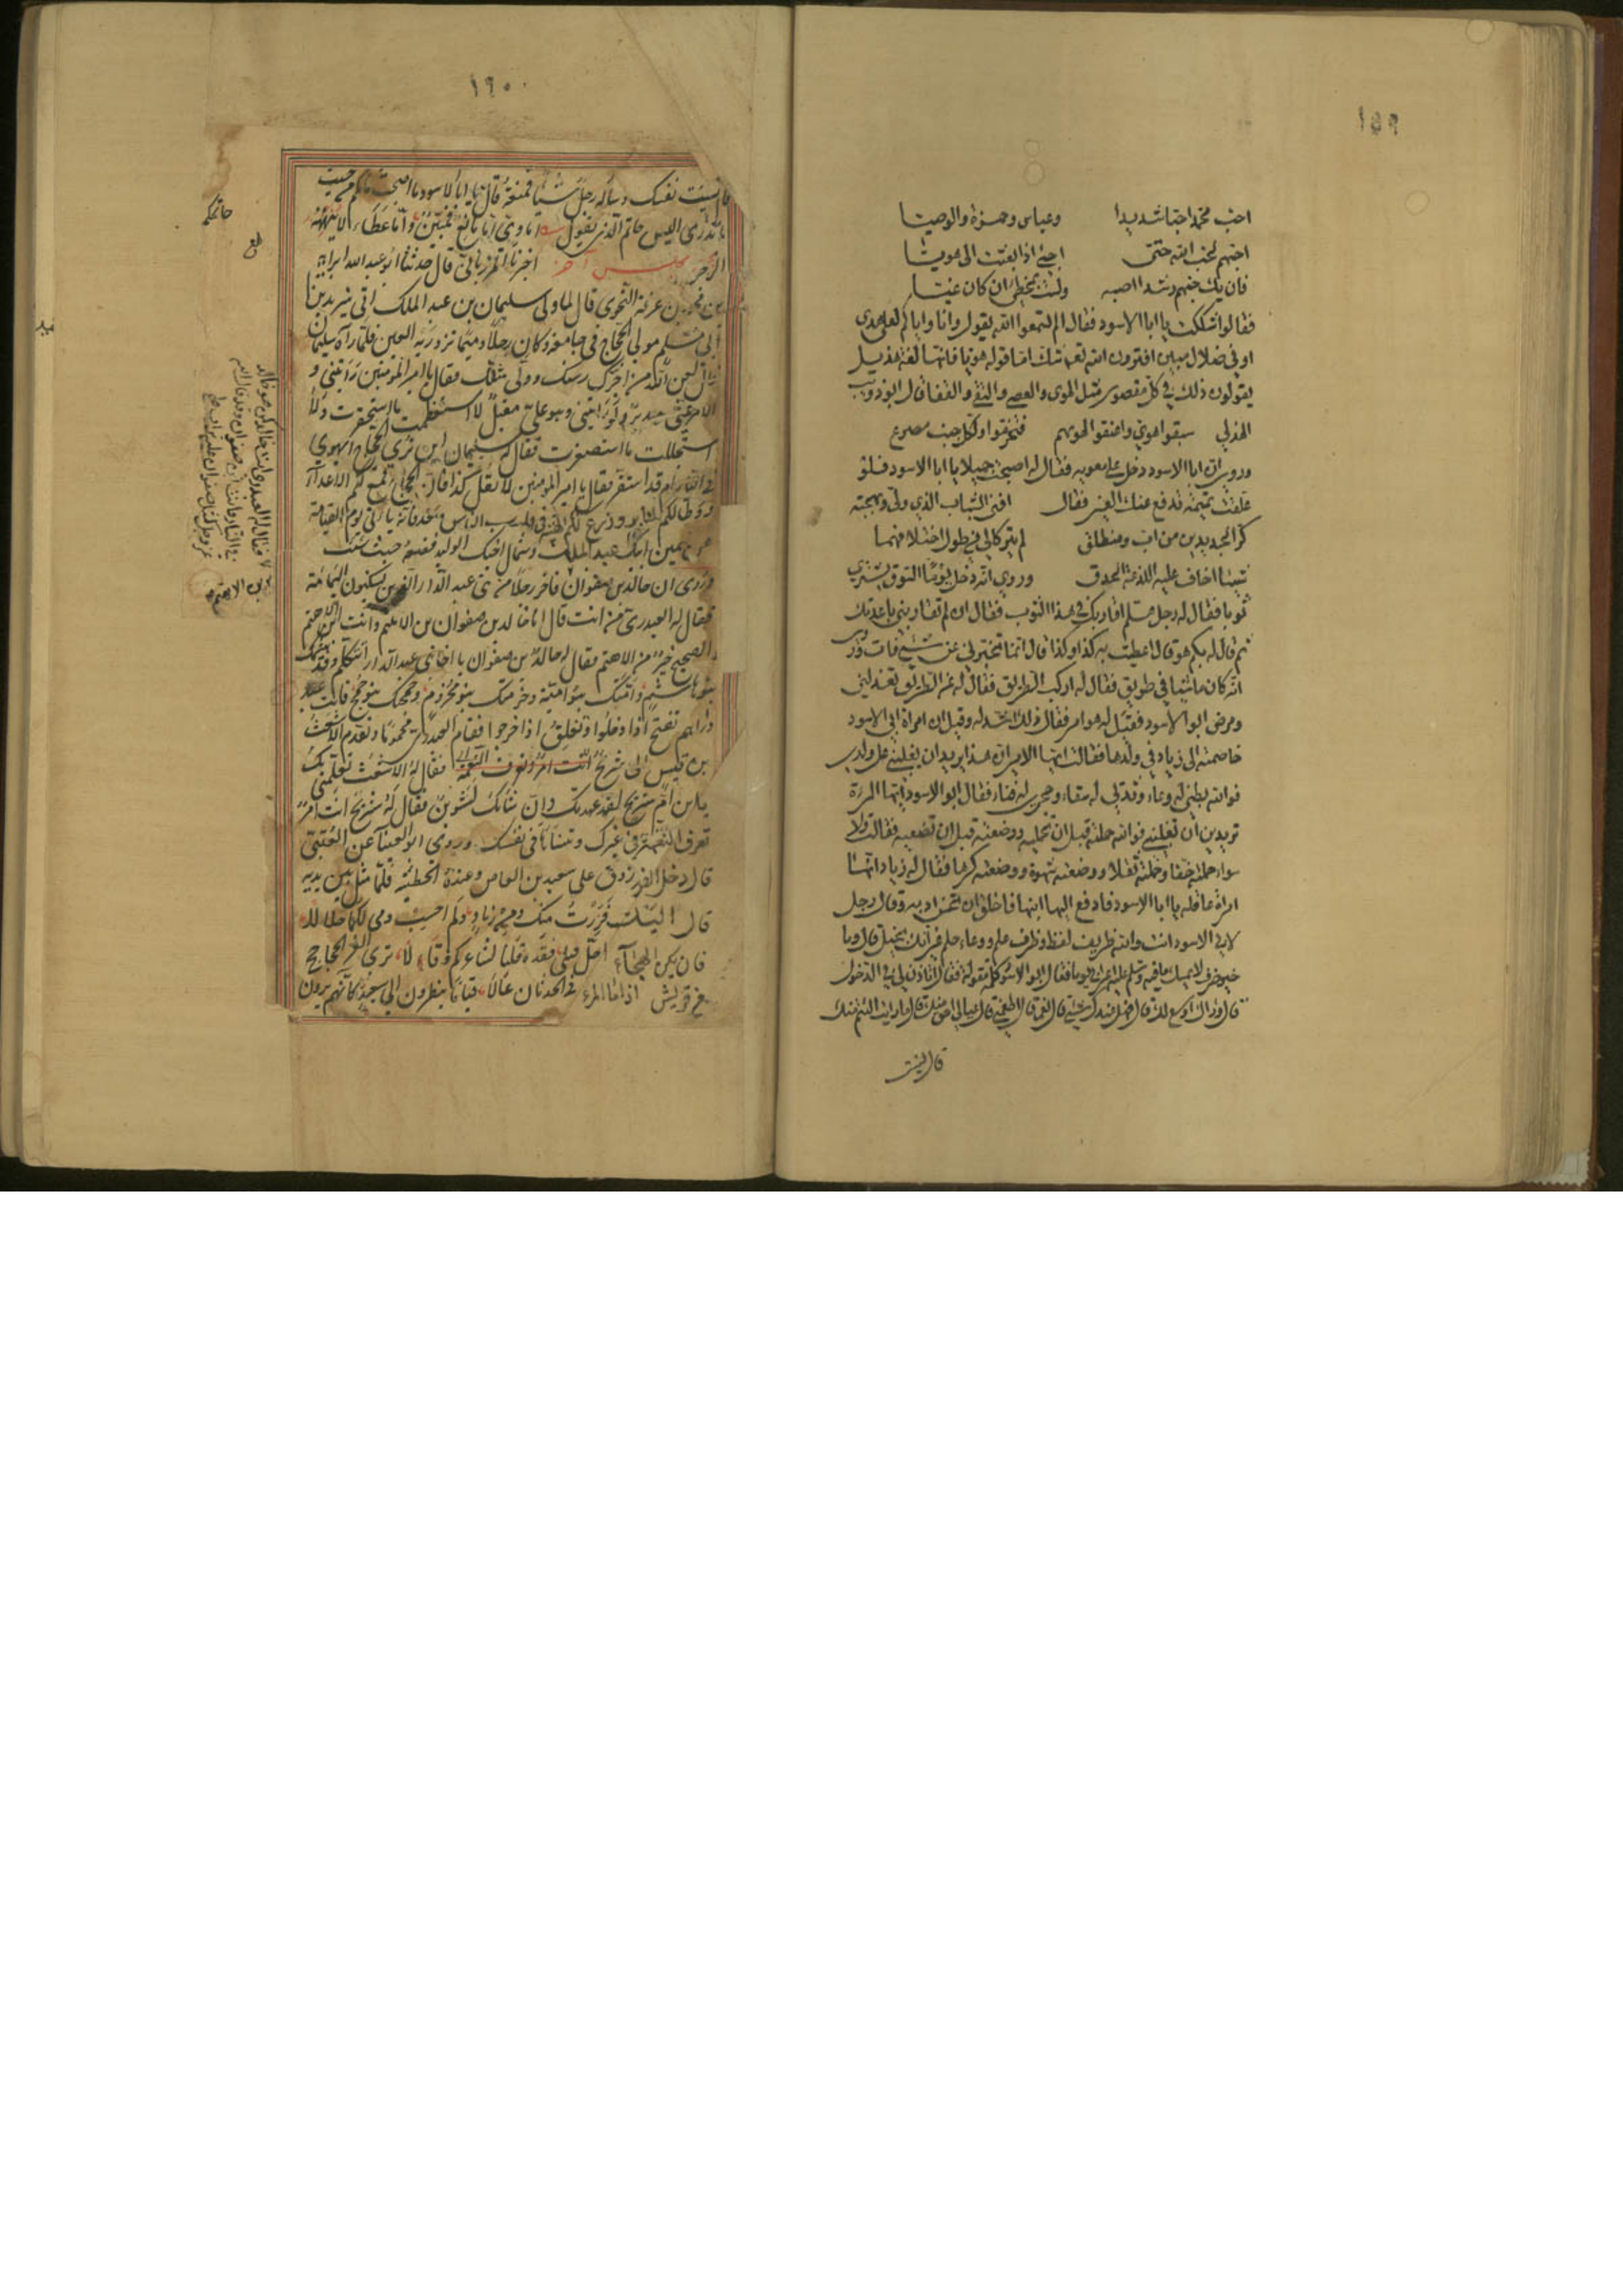 ١٥٩
احب محمدا حبا شديدا وعباس وحمزة والوصيا
احبهم لحب الله حتى اجئ اذا بعثت الى هويا
فان يك حبهم رشدا اصبه ولست بمخطئ ان كان غيا
فقالوا شككت يا ابا الاسود فقال الم تسمعوا الله يقول وانا واياكم لعلى هدى
او في ضلال مبين افترون الله تعالى شك اما قوله هويا فانها لغة هذيل
يقولون ذلك في كل مقصور مثل الهوى والعصى والتقى والقفا قال ابو ذويب
الهذلي سبقوا هوي واعنقوا لهويهم فتخرموا ولكل جنب مصرع
وروى ان ابا الاسود دخل على معوية فقال له اصبحت جميلا يا ابا الاسود فلو
علقت تميمة تدفع عنك العين فقال افنى الشباب الذي ولى وبهجته
كر الجديدين من ات ومنطلق لم يتركا لي في طول اختلافهما
شيئا اخاف عليه لذعة الحدق وروي انه دخل يوما السوق يشتري
ثوبا فقال له رجل هلم اقاربك في هذا الثوب فقال ان لم تقاربني باعدتك
ثم قال له بكم هو قال اعطيت به كذا وكذا قال انما تخبرني عن شئ فات وروى
انه كان ماشيا في طريق فقال له اركب الطريق فقال له عن الطريق تعدلني
ومرض ابو الاسود فقيل له هو امر فقال ذلك اشد له وقيل ان امراة ابي الاسود
خاصمته الى زياد في ولدها فقالت ايها الامير ان هذا يريد ان يغلبني على ولدي
فوالله بطني له وعاء وثديي له سقاء وحجري له فناء فقال ابو الاسود ايتها المرءة
تريدين ان تغلبني فوالله حملته قبل ان تحمليه ووضعته قبل ان تضعيه فقالت ولا
سواء حملته خفا وحملته ثقلا ووضعته شهوة ووضعته كرها فقال له زياد انها
امراة عاقلة يا ابا الاسود فادفع اليها ابنها فاخلق ان تحسن ادبه وقال رجل
لابي الاسود انت والله ظريف لفظ وظرف علم ووعاء حلم غير انك بخيل قال وما
خير ظرف لا يمسك ما فيه وسلم عليه اعرابي يوما فقال ابو الاسود كلمة مقولة فقال اتاذن لي في الدخول
قال وراك اوسع لك قال فهل عندك شئ قال نعم قال اطعمني قال عيالي احق منك قال ما رايت الئم منك
قال نسيت
١٦٠
قال نسيت نفسك وساله رجل شيئا فمنعه فقال يا ابا الاسود ما اصبحت حاتم قال
ما تدرى اليس حاتم الذي يقول اماوي اما مانع فمبين واما عطاء لا ينهنهه
الزجر مجلس آخر اخبرنا المرزباني قال حدثنا ابو عبد الله ابراهيم
بن محمد بن عرفة النحوي قال لما ولى سليمان بن عبد الملك اتي بيزيد بن
ابي مسلم مولى الحجاج في جامعة وكان رجلا دميما تزدريه العين فلما رآه سليمان
قال لعن الله من اجرك رسنك وولى مثلك فقال يا امير المؤمنين رايتني و
الامر عني مدبر ولو رايتني وهو على مقبل لاستعظمت ما استحقرت ولا
استجللت ما استصغرت فقال له سليمان اين ترى الحجاج ايهوي
في النار ام قد استقر فقال يا امير المؤمنين لا تقل كذا فان الحجاج قمع لكم الاعداء
ووطا لكم المنابر وزرع لكم الهيبة في قلوب الناس وبعد فانه ياتي يوم القيامة
عن يمين ابيك عبد الملك وشمال اخيك الوليد فضعه حيث شئت
وروى ان خالد بن صفوان فاخر رجلا من بني عبد الدار الذين يسكنون اليمامة
فقال له العبدري من انت قال انا خالد بن صفوان بن الاهتم
الصحيح خير من الاهتم فقال له خالد بن صفوان يا اخا بني عبد الدار اتتكلم وقد هشمتك
بنو هاشم وامتك بنو امية وخزمتك بنو مخزوم وجمحتك بنو جمح فانت عبد
دارهم تفتح اذا دخلوا وتغلق اذا خرجوا فقام العبدري محموما وتقدم الاشعث
بن قيس الى شريح فقال له الاشعث
يا ابن ام شريح لقد عهدتك وان شانك لشوين فقال له شريح انت امرؤ
تعرف النعمة في غيرك وتنساها في نفسك وروى ابو العيناء عن العتبي
قال دخل الفرزدق على سعيد بن العاص وعنده الحطيئة فلما مثل بين يديه
قال اليك فررت منك ومن زياد ولم احسب دمي لكما حلالا
فان يكن الهجاء احل قتلي فقد قلنا لشاعركم وقالا ترى الغر الجحاجح
من قريش اذا ما المرء في الحدثان عالا قياما ينظرون الى سعيد كانهم يرون